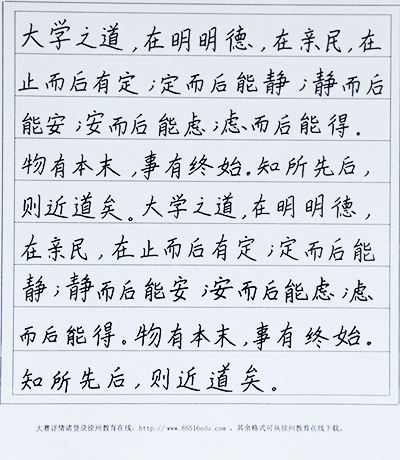 大学之道,在明明德,在亲民,在
止而后有定;定而后能静;静而后
能安;安而后能虑;虑而后能得。
物有本末,事有终始。知所先后,
则近道矣。大学之道,在明明德,
在亲民,在止而后有定;定而后能
静;静而后能安;安而后能虑;虑
而后能得。物有本末,事有终始。
知所先后,则近道矣。
大赛详情请登录徐州教育在线:http://www.86516edu.com,其余格式可从徐州教育在线下载。